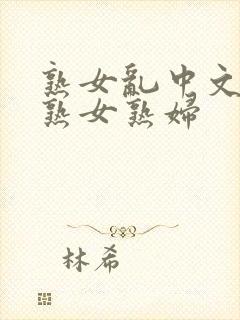 熟女亂中文
熟女熟婦
林希